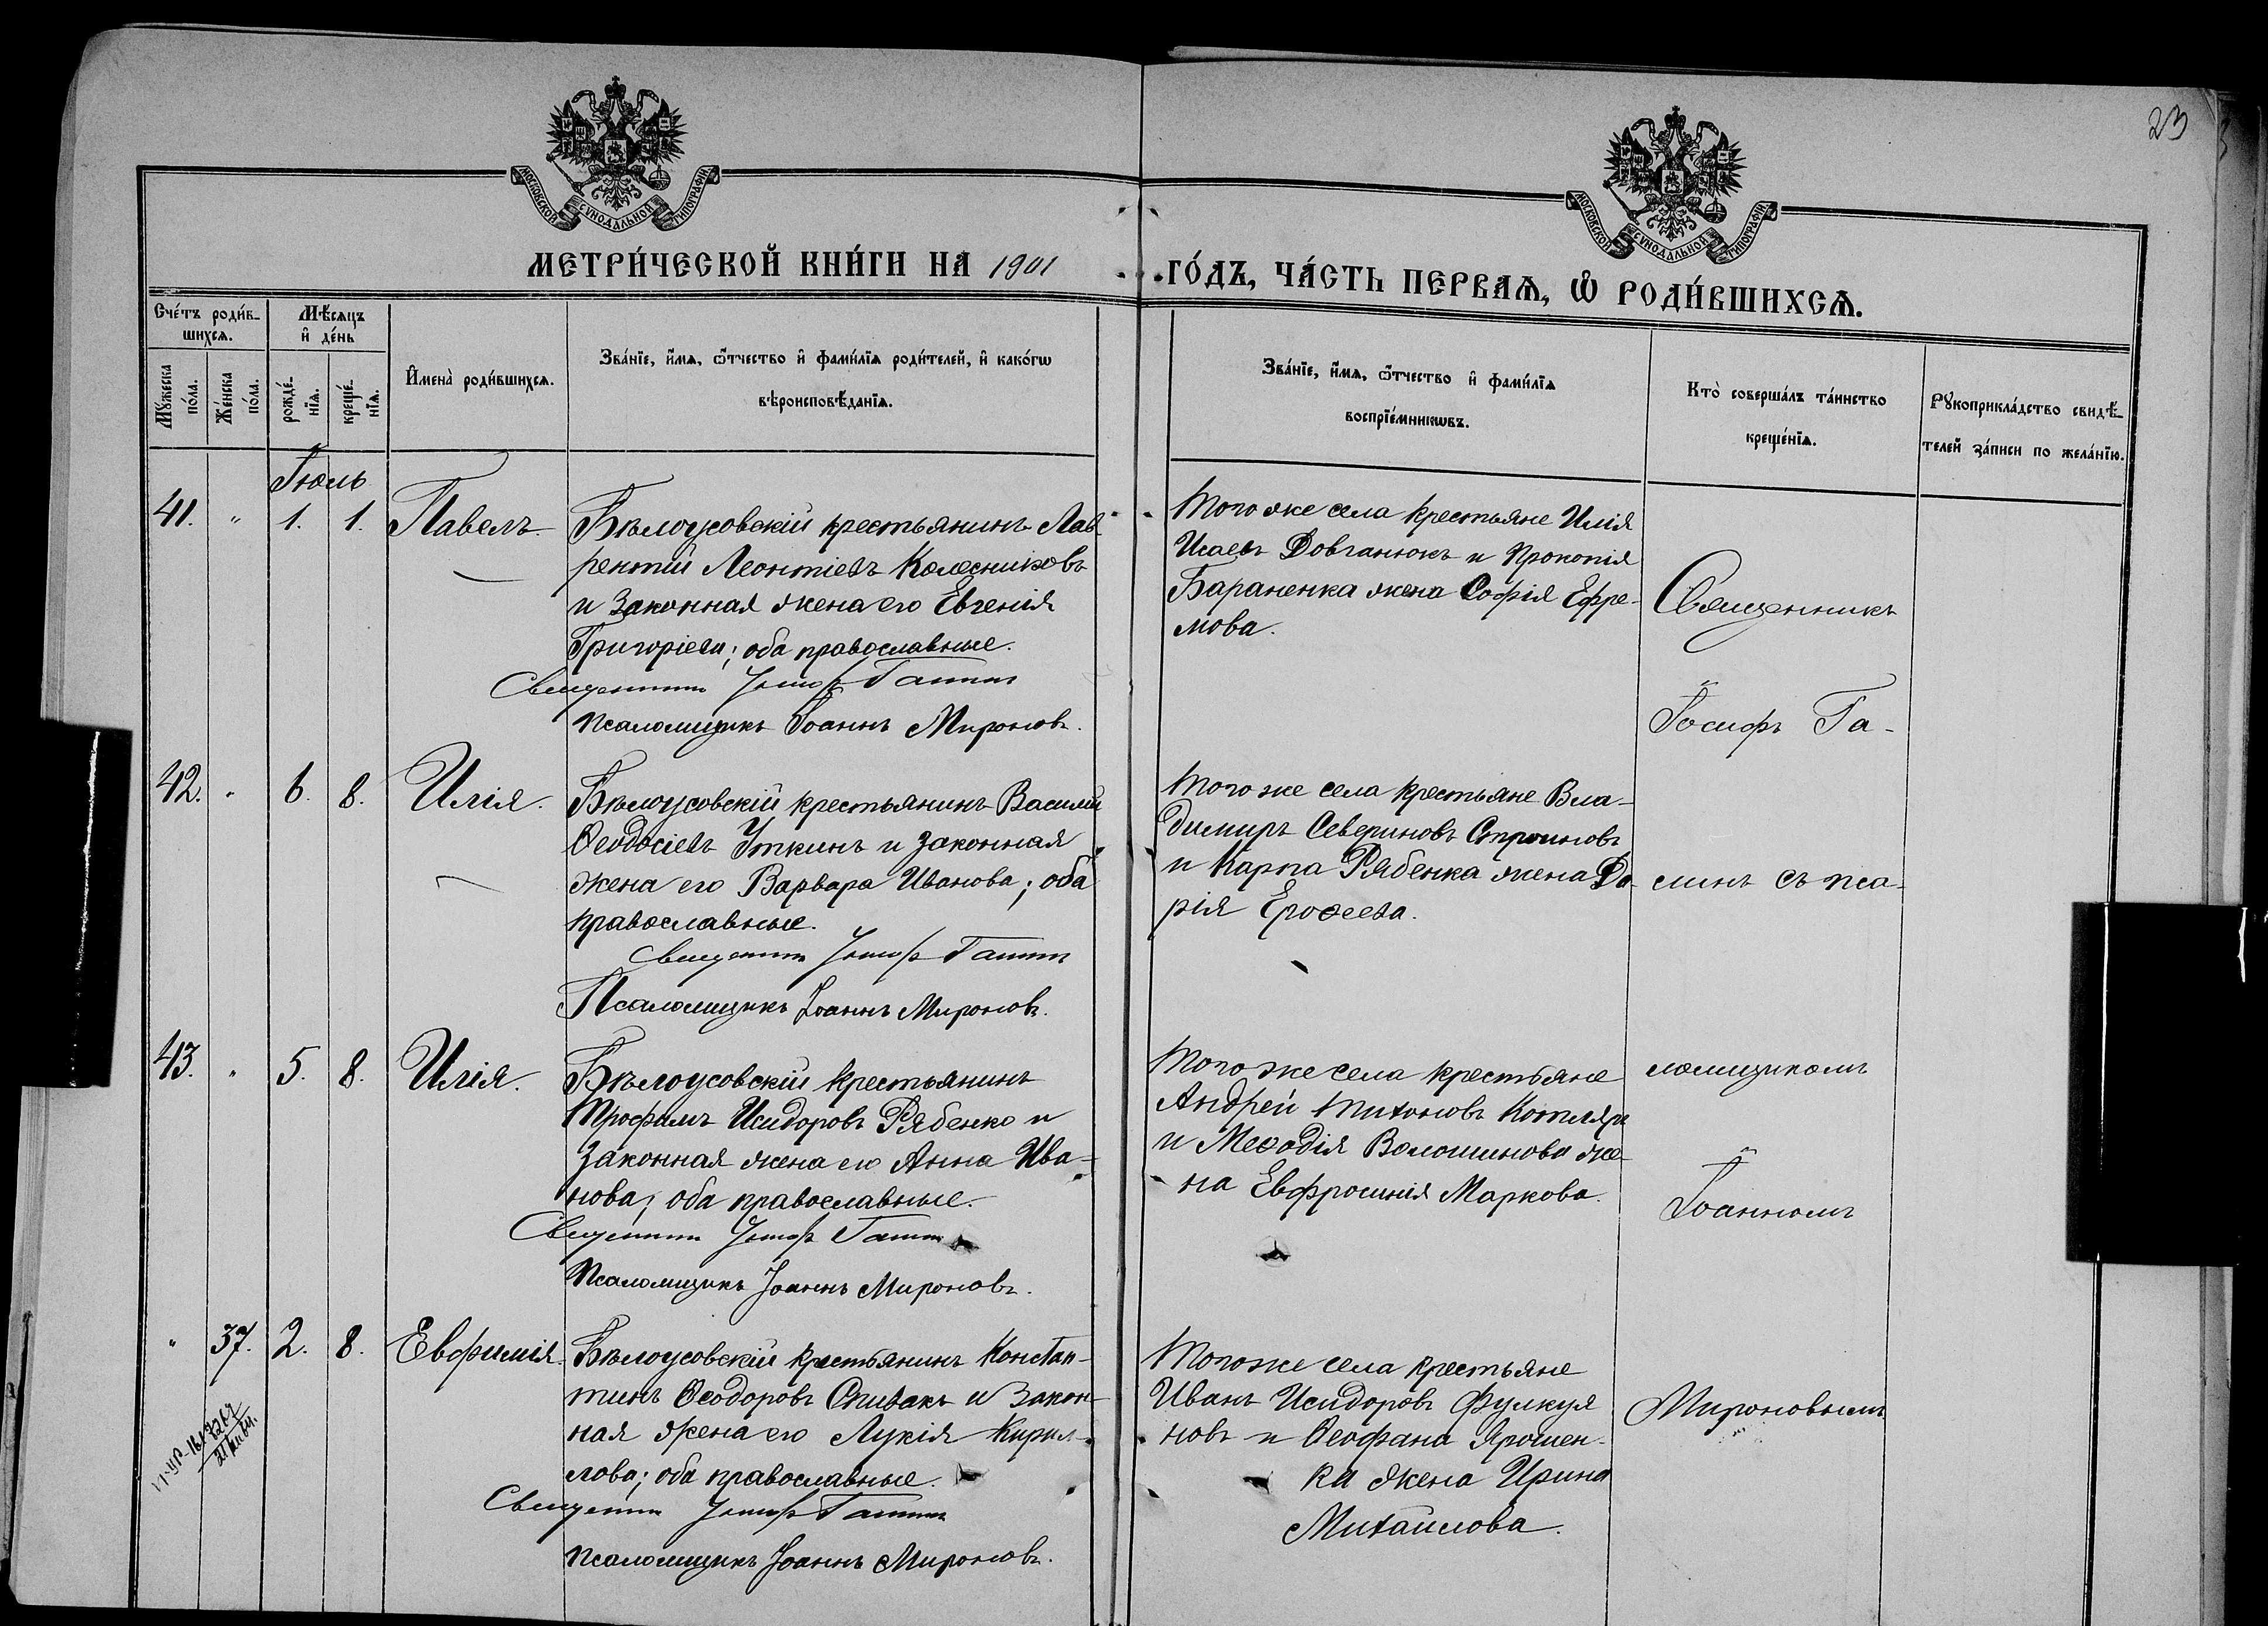 23
МОСКОВСКОЙ СѴНОДАЛЬНОЙ ТИПОГРАФІИ.
МОСКОВСКОЙ СѴНОДАЛЬНОЙ ТИПОГРАФІИ.
МЕТРИ́ЧЕСКОЙ КНИ́ГИ НА 1901
ГО́ДЪ, ЧА́СТЬ ПЕРВАѦ, Ѡ҆ РОДИ́ВШИХСѦ.
Сче́тъ роди́в-
шихсѧ.
Мꙋ́жеска по́ла.
Же́нска по́ла.
Мѣ́сѧцъ
и҆ де́нь
рожде́-
нїѧ.
креще́-
нїѧ.
И҆мена̀ роди́вшихсѧ.
Зва́нїе, и҆́мѧ, ѻ҆́тчество и҆ фамѝлїѧ роди́телей, и҆ како́гѡ
вѣроисповѣ́данїѧ.
Зва́нїе, и҆́мѧ, ѻ҆́тчество и҆ фами́лїѧ
воспрїе́мникѡвъ.
Кто̀ соверша́лъ та́инство
креще́нїѧ.
Рꙋкоприкла́дство свидѣ́-
телей за́писи по жела́нїю.
Іюль
41. " 1. 1. Павелъ.
Бѣлоусовскій крестьянинъ Лав-
рентій Леонтіевъ Колесниковъ
и законная жена его Евгенія
Григоріева; оба православные.
Священникъ Іосифъ Гаминъ
Псаломщикъ Іоаннъ Мироновъ.
Того же села крестьяне Илія
Исаевъ Довганюкъ и Прокопія
Бараненка жена Софія Ефре-
мова.
Священникъ
Іосифъ Га-
42. " 6. 8. Илія.
Бѣлоусовскій крестьянинъ Василій
Ѳеодосіевъ Уткинъ и законная
жена его Варвара Иванова; оба
православные.
Священникъ Іосифъ Гаминъ
Псаломщикъ Іоаннъ Мироновъ.
Того же села крестьяне Вла-
димиръ Севериновъ Строиновъ
и Карпа Рябенка жена Да-
рія Ероѳеева.
минъ съ пса-
43. " 5. 8. Илія.
Бѣлоусовскій крестьянинъ
Трофимъ Исидоровъ Рябенко и
законная жена его Анна Ива-
нова; оба православные.
Священникъ Іосифъ Гаминъ
Псаломщикъ Іоаннъ Мироновъ.
Того же села крестьяне
Андрей Тихоновъ Котляръ
и Меѳодія Волошинова же-
на Евфросинія Маркова.
ломщикомъ
Іоанномъ
" 37. 2. 8. Евфимія.
Бѣлоусовскій крестьянинъ Констан-
тинъ Ѳеодоровъ Спивакъ и закон-
ная жена его Лукія Кирил-
лова; оба православные.
Священникъ Іосифъ Гаминъ
Псаломщикъ Іоаннъ Мироновъ.
Того же села крестьяне
Иванъ Исидоровъ Фулкуля
новъ и Ѳеофана Ярошен-
ка жена Ирина
Михайлова.
Мироновымъ